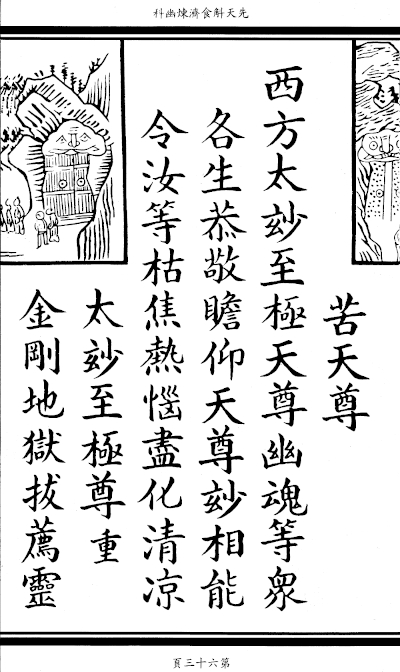 先天斛食濟煉幽科
苦天尊
西方太玅至極天尊幽魂等衆
各生恭敬瞻仰天尊玅相能
令汝等枯焦熱惱盡化清凉
太玅至極尊重
金剛地獄拔薦靈
第六十三頁